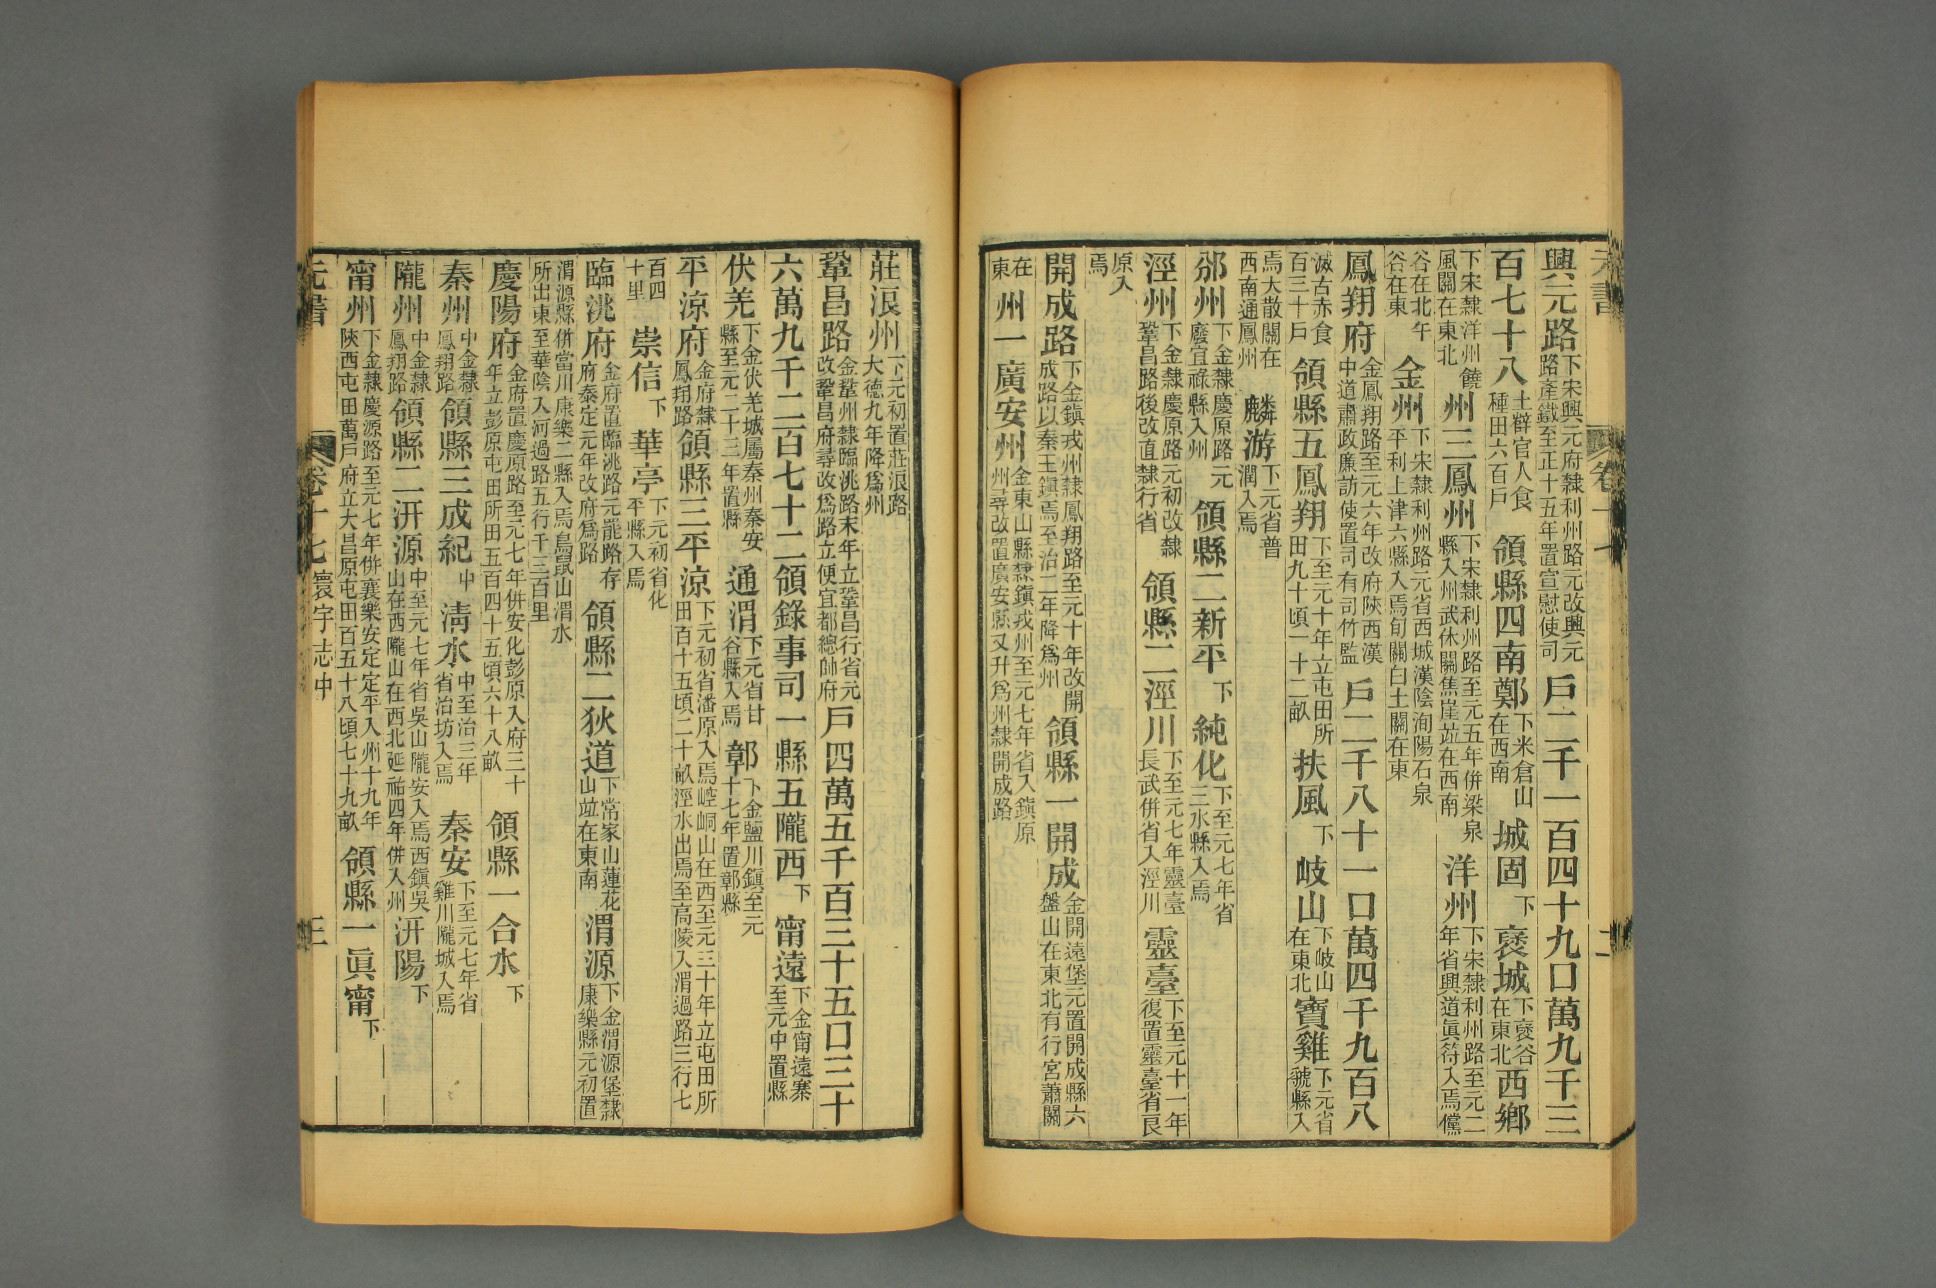 元書 卷十七 二
興元路下宋興元府隸利州路元改興元路產鐵至正十五年置宣慰使司戶二千一百四十九口萬九千三
百七十八土辥官人食種田六百戶領縣四南鄭下米倉山在西南城固下褒城下褒谷在東北西鄉
下宋隸洋州饒風關在東北州三鳳州下宋隸利州路至元五年併梁泉縣入州武休關焦崖竝在西南洋州下宋隸利州路至元二年省興道眞符入焉儻
谷在北午谷在東金州下宋隸利州路元省西城漢陰洵陽石泉平利上津六縣入焉旬關白土關在東
鳳翔府金鳳翔路至元六年改府陜西漢中道肅政廉訪使置司有司竹監戶二千八十一口萬四千九百八
滅古赤食百三十戶領縣五鳳翔下至元十年立屯田所田九十頃一十二畝扶風下岐山下岐山在東北寶雞下元省虢縣入
焉大散關在西南通鳳州麟游下元省普潤入焉
邠州下金隸慶原路元廢宜祿縣入州領縣二新平下純化下至元七年省三水縣入焉
涇州下金隸慶原路元初改隸鞏昌路後改直隸行省領縣二涇川下至元七年靈臺長武併省入涇川靈臺下至元十一年復置靈臺省良
原入焉
開成路下金鎭戎州隸鳳翔路至元十年改開成路以秦王鎭焉至治二年降爲州領縣一開成金開遠堡元置開成縣六盤山在東北有行宮蕭關
在東州一廣安州金東山縣隸鎭戎州至元七年省入鎭原州尋改置廣安縣又升爲州隸開成路
莊浪州下元初置莊浪路大德九年降爲州
鞏昌路金鞏州隸臨洮路末年立鞏昌行省元改鞏昌府尋改爲路立便宜都總帥府戶四萬五千百三十五口三十
六萬九千二百七十二領錄事司一縣五隴西下甯遠下金甯遠寨至元中置縣
伏羌下金伏羌城屬秦州秦安縣至元二十三年置縣通渭下元省甘谷縣入焉鄣下金鹽川鎭至元十七年置鄣縣
平涼府金府隸鳳翔路領縣三平涼下元初省潘原入焉崆峒山在西至元三十年立屯田所田百十五頃二十畝涇水出焉至高陵入渭過路三行七
百四十里崇信下華亭下元初省化平縣入焉
臨洮府金府置臨洮路元罷路存府泰定元年改府爲路領縣二狄道下常家山蓮花山竝在東南渭源下金渭源堡隸康樂縣元初置
渭源縣併當川康樂二縣入焉鳥鼠山渭水所出東至華陰入河過路五行千三百里
慶陽府金府置慶原路至元七年併安化彭原入府三十年立彭原屯田所田五百四十五頃六十八畝領縣一合水下
秦州中金隸鳳翔路領縣三成紀中淸水中至治三年省治坊入焉秦安下至元七年省雞川隴城入焉
隴州中金隸鳳翔路領縣二汧源中至元七年省吳山隴安入焉西鎭吳山在西隴山在西北延祐四年併入州汧陽下
甯州下金隸慶源路至元七年併襄樂安定定平入州十九年陜西屯田萬戶府立大昌原屯田百五十八頃七十九畝領縣一眞甯下
元書 卷十七 寰宇志中 三